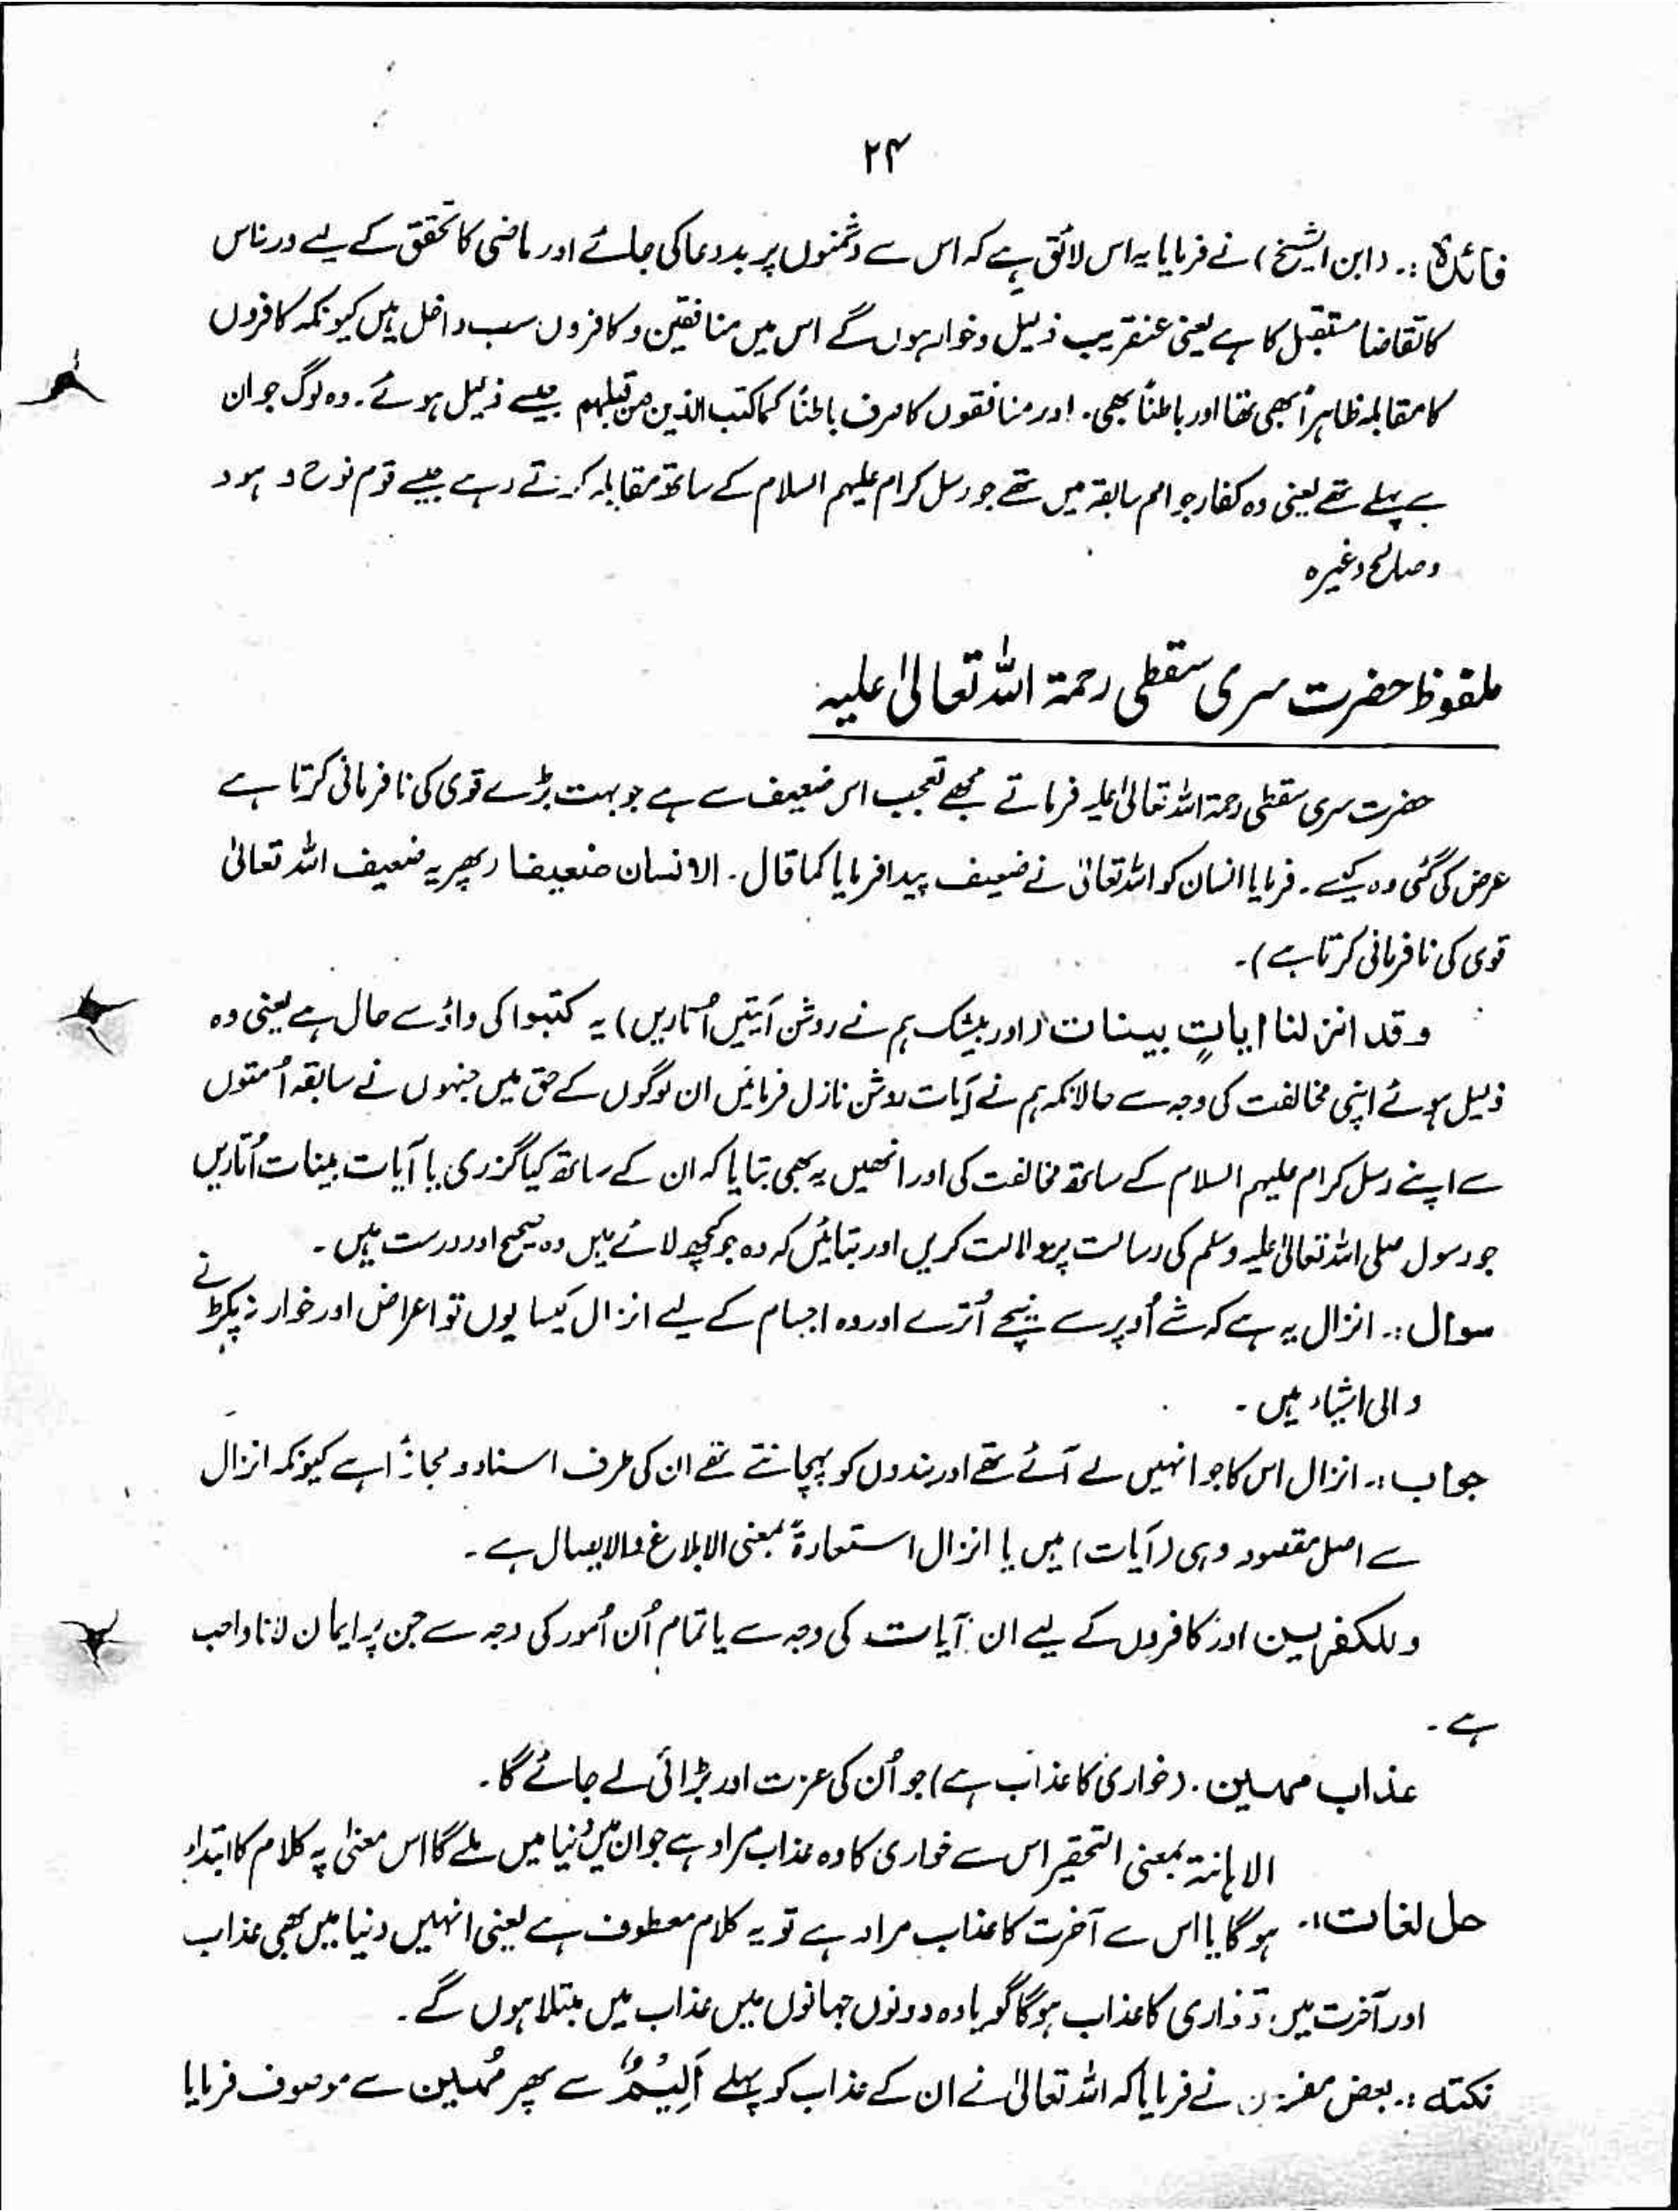 ۲۴
فائدہ :۔ (ابن الشیخ) نے فرمایا یہ اس لائق ہے کہ اس سے دشمنوں پر بددعا کی جائے اور ماضی کا تحقق کے لیے ورنہ اس
کا تقاضا مستقبل کا ہے یعنی عنقریب ذلیل و خوار ہوں گے اس میں منافقین و کافروں سب داخل ہیں کیونکہ کافروں
کا مقابلہ ظاہراً بھی تھا اور باطناً بھی۔ اور منافقوں کا صرف باطناً کما کتب الذین من قبلہم جیسے ذلیل ہوئے۔ وہ لوگ جو ان
سے پہلے تھے یعنی وہ کفار جو امم سابقہ میں تھے جو رسل کرام علیہم السلام کے ساتھ مقابلہ کرتے رہے جیسے قوم نوح و ہود
و صالح وغیرہ
ملفوظ حضرت سری سقطی رحمۃ اللہ تعالیٰ علیہ
حضرت سری سقطی رحمۃ اللہ تعالیٰ علیہ فرماتے مجھے تعجب اس ضعیف سے ہے جو بہت بڑے قوی کی نافرمانی کرتا ہے
عرض کی گئی وہ کیسے۔ فرمایا انسان کو اللہ تعالیٰ نے ضعیف پیدا فرمایا کما قال۔ الانسان ضعیفا (پھر یہ ضعیف اللہ تعالیٰ
قوی کی نافرمانی کرتا ہے)۔
و قد انزلنا ایاتٍ بینات (اور بیشک ہم نے روشن آیتیں اُتاریں) یہ کتبوا کی واؤ سے حال ہے یعنی وہ
ذلیل ہوئے اپنی مخالفت کی وجہ سے حالانکہ ہم نے آیات روشن نازل فرمائیں ان لوگوں کے حق میں جنہوں نے سابقہ اُمتوں
سے اپنے رسل کرام علیہم السلام کے ساتھ مخالفت کی اور انھیں یہ بھی بتایا کہ ان کے ساتھ کیا گزری یا آیات بینات اُتاریں
جو رسول صلی اللہ تعالیٰ علیہ وسلم کی رسالت پر دلالت کریں اور بتائیں کہ وہ جو کچھ لائے ہیں وہ صحیح اور درست ہیں۔
سوال :۔ انزال یہ ہے کہ شے اُوپر سے نیچے اُترے اور وہ اجسام کے لیے انزال کیسا یوں تو اعراض اور خوار نہ پکڑنے
والی اشیاء ہیں۔
جواب :۔ انزال اس کا جو انہیں لے آئے تھے اور بندوں کو پہچانتے تھے ان کی طرف اسناد و مجازاً ہے کیونکہ انزال
سے اصل مقصود وہی (آیات) ہیں یا انزال استعارۃً بمعنی الابلاغ والایصال ہے۔
وللکفرین اور کافروں کے لیے ان آیات کی وجہ سے یا تمام اُن اُمور کی وجہ سے جن پر ایمان لانا واجب
ہے۔
عذاب مھین۔ (خواری کا عذاب ہے) جو اُن کی عزت اور بڑائی لے جائے گا۔
الاہانۃ بمعنی التحقیر اس سے خواری کا وہ عذاب مراد ہے جو ان میں دُنیا میں ملے گا اس معنیٰ پہ کلام کا ابتداء
حل لغات :۔ ہوگا یا اس سے آخرت کا عذاب مراد ہے تو یہ کلام معطوف ہے یعنی انہیں دنیا میں بھی عذاب
اور آخرت میں خواری کا عذاب ہوگا گویا وہ دونوں جہانوں میں عذاب میں مبتلا ہوں گے۔
نکتہ :۔ بعض مفسرین نے فرمایا کہ اللہ تعالیٰ نے ان کے عذاب کو پہلے اَلِیْمٌ سے پھر مُہین سے موصوف فرمایا